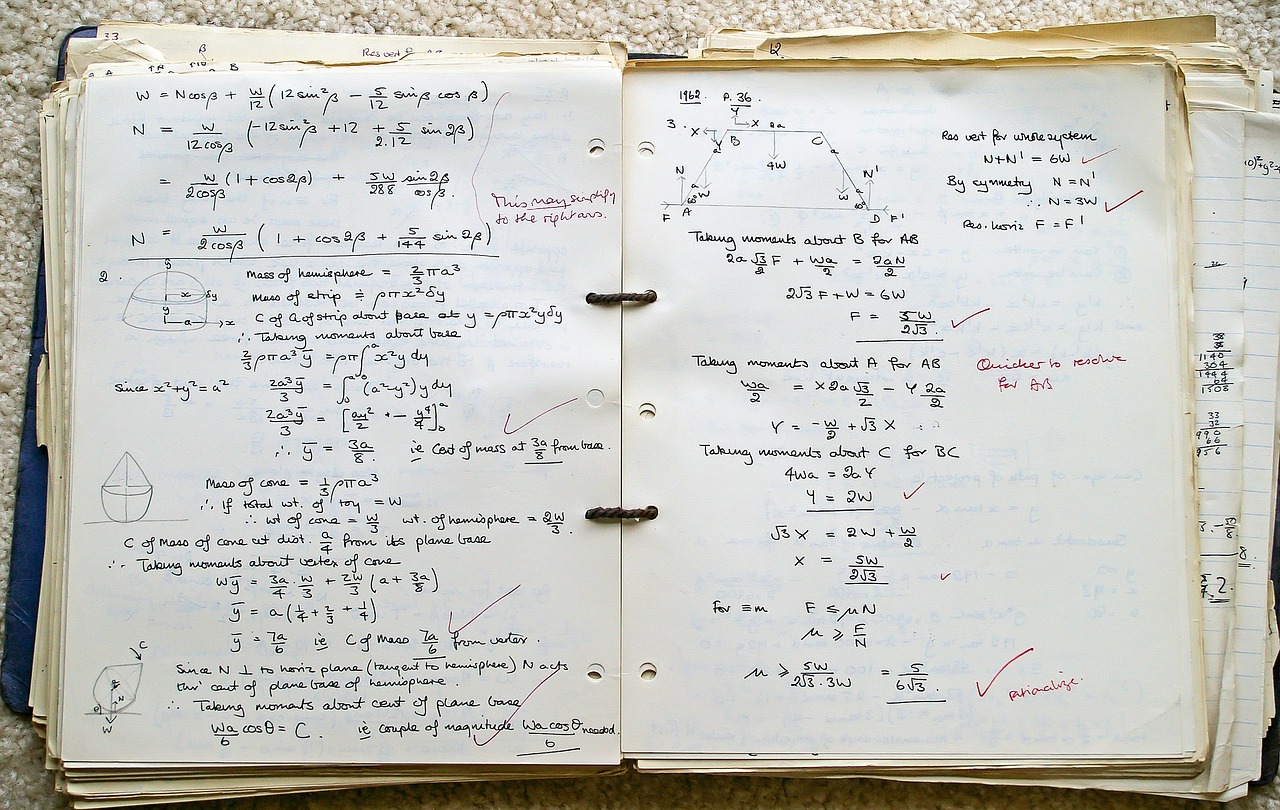 33.
β
Res vert
W = Ncosβ + W/12 (12sin²β − 5/12 sinβ cosβ)
N = W/12cosβ (−12sin²β + 12 + 5/2.12 sin2β)
= W/2cosβ (1 + cos2β) + 5W/288 sin2β/cosβ.
This may simplify
to the right ans.
N = W/2cosβ (1 + cos2β + 5/144 sin2β)
2.
Mass of hemisphere = 2/3 πa³
Mass of strip ≐ ρπx²δy
C of G of strip about base at y = ρπx²yδy
∴ Taking moments about base
2/3 ρπa³ȳ = ρπ∫₀ᵃ x²y dy
Since x²+y²=a² 2a³ȳ/3 = ∫₀ᵃ (a²−y²)y dy
2a³ȳ/3 = [ay²/2 − y⁴/4]₀ᵃ
∴ ȳ = 3a/8 ie Cent of mass at 3a/8 from base.
Mass of cone = 1/3 ρπa³
∴ If total wt. of toy = W
∴ wt of cone = W/3 wt. of hemisphere = 2W/3.
C of Mass of cone at dist. a/4 from its plane base
∴ Taking moments about vertex of cone
Wȳ = 3a/4 . W/3 + 2W/3 (a + 3a/8)
ȳ = a(1/4 + 2/3 + 1/4)
ȳ = 7a/6 ie C of Mass 7a/6 from vertex.
C
N
W
θ
Since N ⊥ to horiz plane (tangent to hemisphere) N acts
thro' cent of plane base of hemisphere.
∴ Taking moments about cent of plane base
Wa/6 cosθ = C. ie couple of magnitude Wa cosθ/6 needed.
12.
1962. P. 36.
3.
Y
X
X
2a
B
C
Y
a
4W
a
N
a
W
W
a
N'
60°
60°
F
A
D
F'
Res vert for whole system
N+N' = 6W
By symmetry N = N'
∴ N = 3W
Res. horiz F = F'
Taking moments about B for AB
2a √3/2 F + Wa/2 = 2aN/2
2√3 F + W = 6W
F = 5W/2√3.
Taking moments about A for AB
Quicker to resolve
for AB
Wa/2 = X 2a √3/2 − Y 2a/2
Y = −W/2 + √3 X
Taking moments about C for BC
4Wa = 2aY
Y = 2W
√3 X = 2W + W/2
X = 5W/2√3
For ≡m F ≤ μN
μ ≥ F/N
μ ≥ 5W/2√3.3W = 5/6√3.
rationalize.
38
38
1140
304
1444
64
1508
33
32
990
66
956